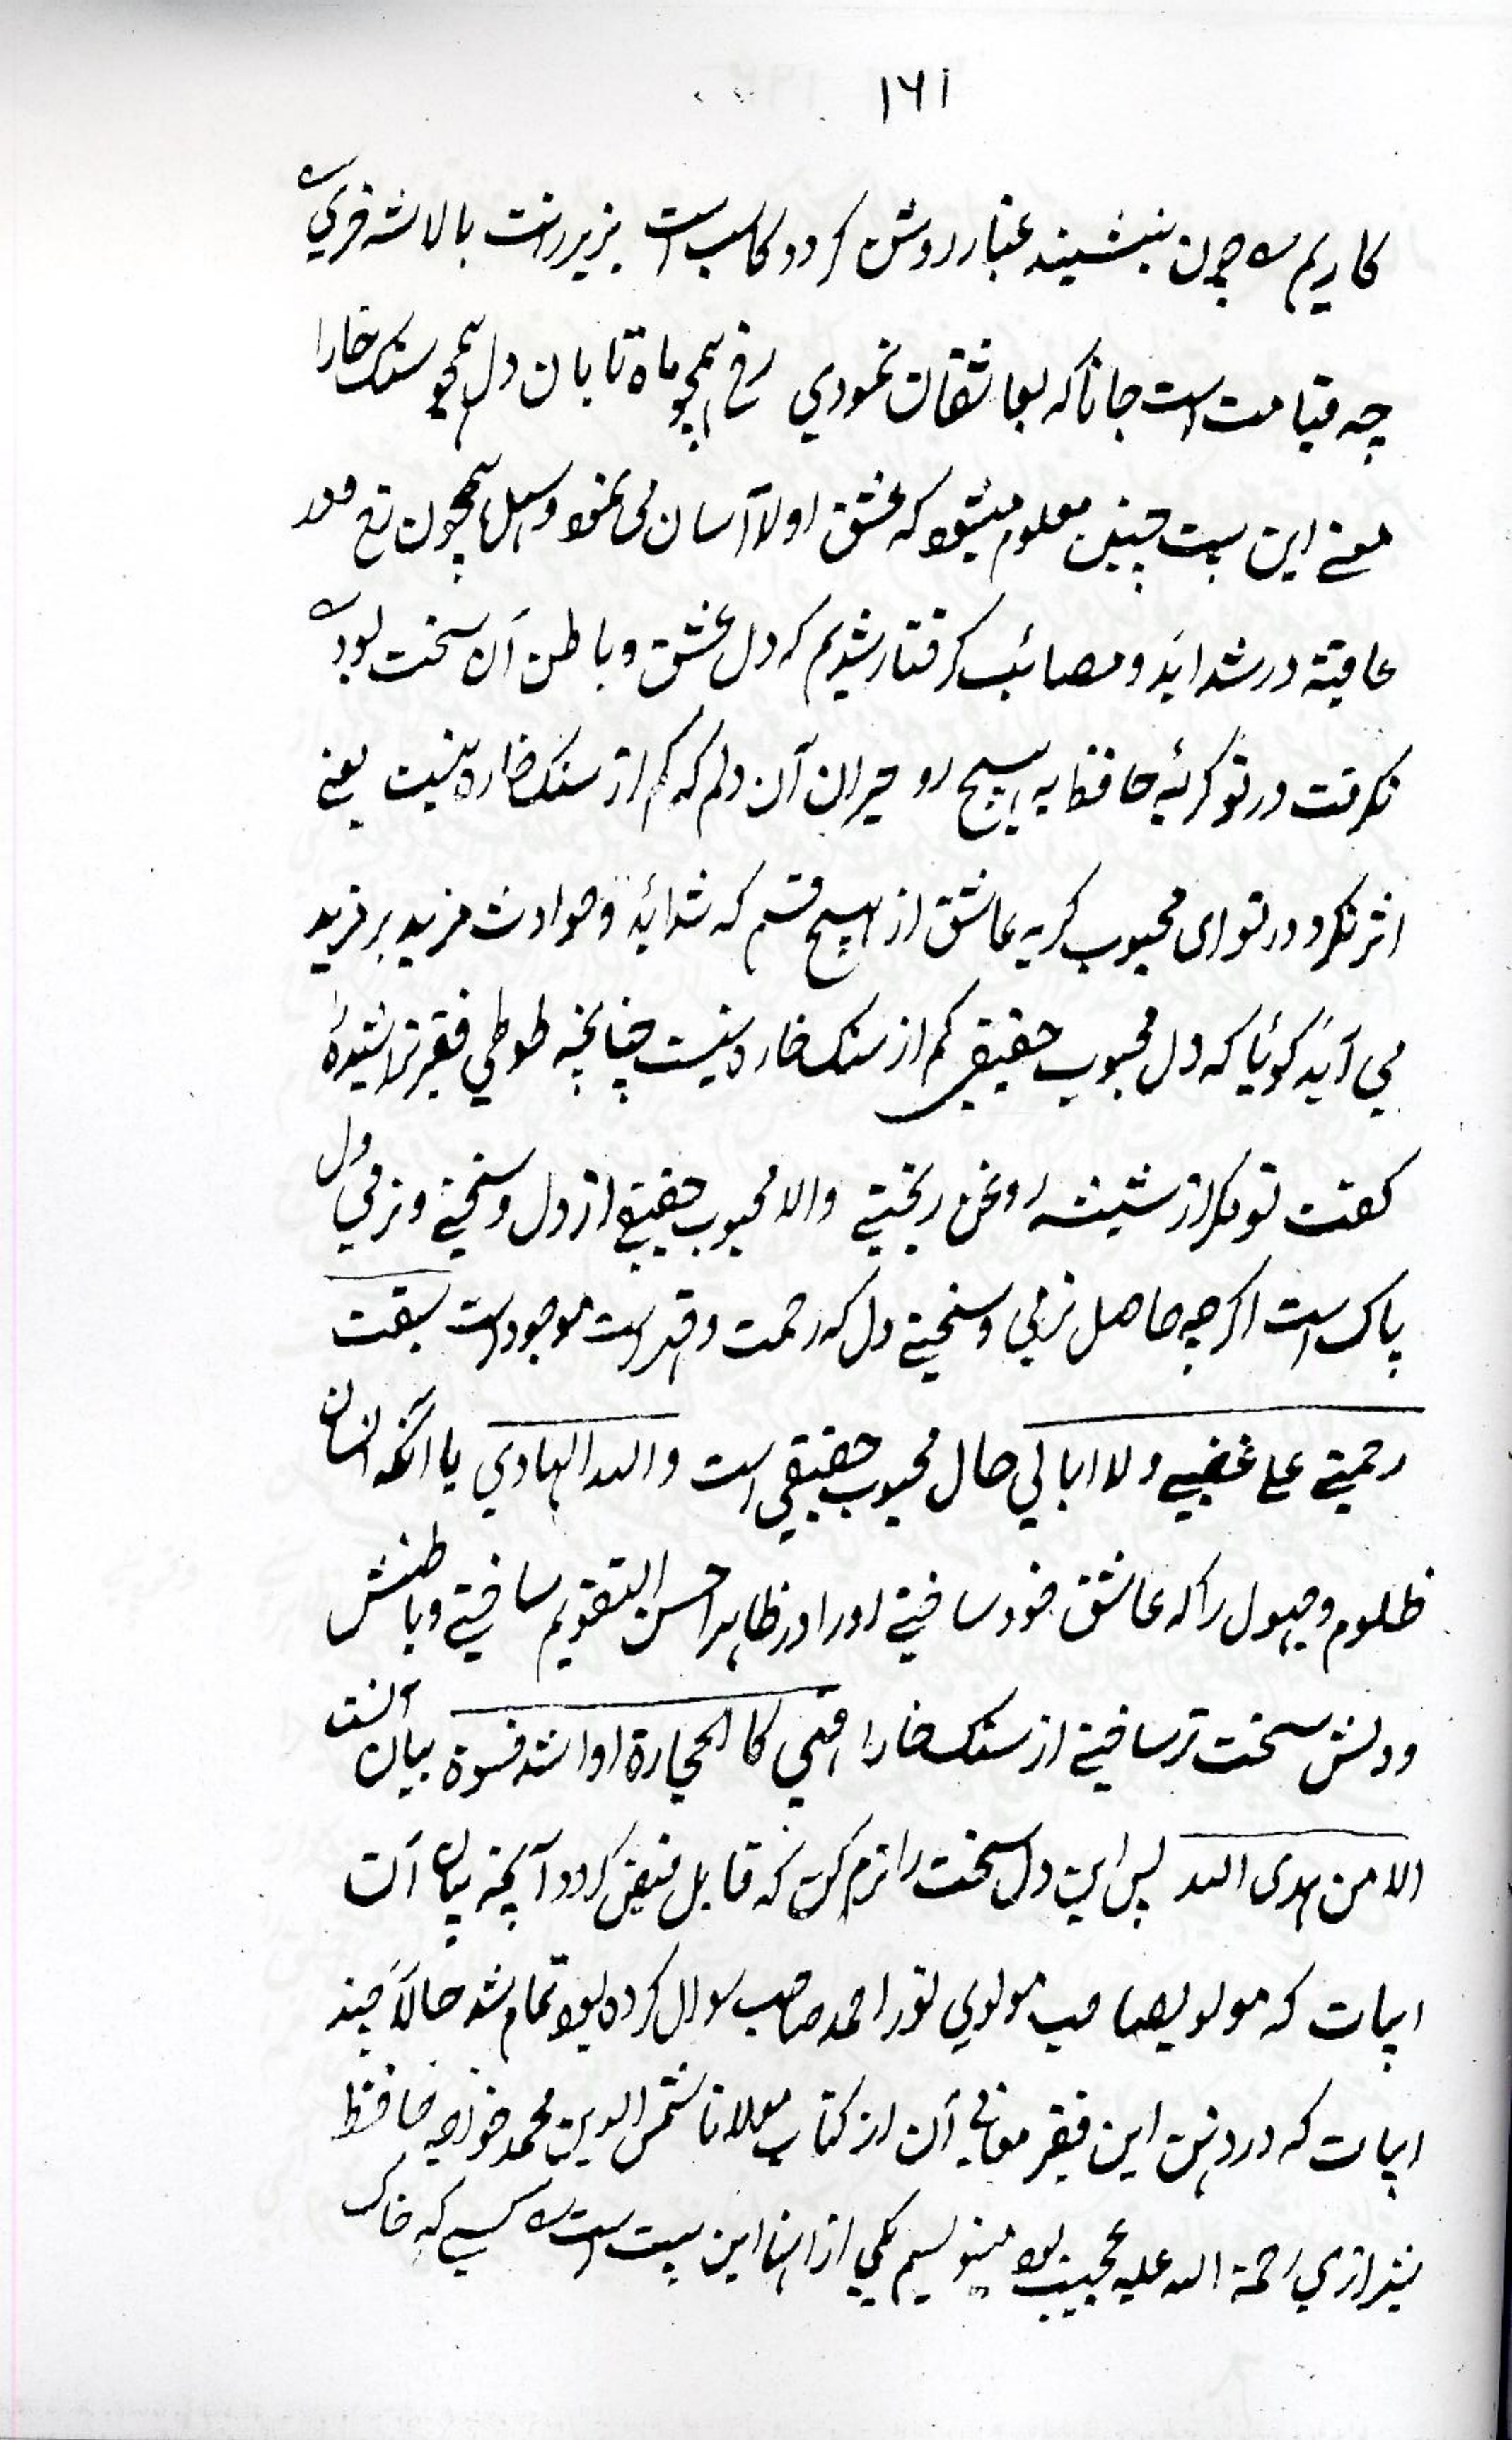 ۱۶۱
کاریم چون بنشیند غبار روشن کردد کاسب است بزیر رانت بالاشه فری
چه قیامت است جانا که بعاشقان نمودي رخ همچو ماه تابان دل همچو سنک خارا
معنے این بیت چنین معلوم میشود که عشق اولا آسان می نمود وسهل همچون رخ
عاقبة در شدائد ومصائب کرفتار شدیم که دل عشق وباطن آن سخت بود
نکرفت در تو کرئیه حافظ به هیچ رو حیران آن دلم که کم از سنک خاره نیست یعنے
اثر نکرد در تو ای محبوب کریه عاشق از هیچ قسم که شدائد وحوادث مزید بر مزید
مي آید کوئیا که دل محبوب حقیقي کم از سنک خاره نیست چنانچه طوطي فقیر تراشیدهٔ
کفت تو مکر از شیشه روغن ریختے والا محبوب حقیقے از دل وسختے ونرمي دل
پاک است اکرچه حاصل نرمي وسختے دل که رحمت وقهر است موجود است سبقت
رحمتے علے غضبے ولا ابالي حال محبوب حقیقي است والله الهادي یا آنکه انسان
ظلوم وجهول را که عاشق خود ساختے اورا در ظاهر احسن التقویم ساختے وباطنش
ودلش سخت تر ساختے از سنک خارا فهي کالحجارة او اشد قسوة بیان آنست
الا من هدی الله پس این دل سخت را نرم کن که قابل فیض کردد آنچه بیان آن
ابیات که مولویصاحب مولوي نور احمد صاحب سوال کرده بود تمام شد حالاً چند
ابیات که در ذهن این فقیر معانی آن از کتاب مولانا شمس الدین محمد خواجه حافظ
شیرازي رحمة الله علیه عجیب بود مینویسم یکي از انها این بیت است کسے که خاک